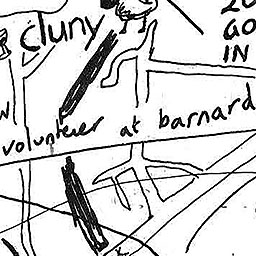 cluny
GO
IN
volunteer at barnard